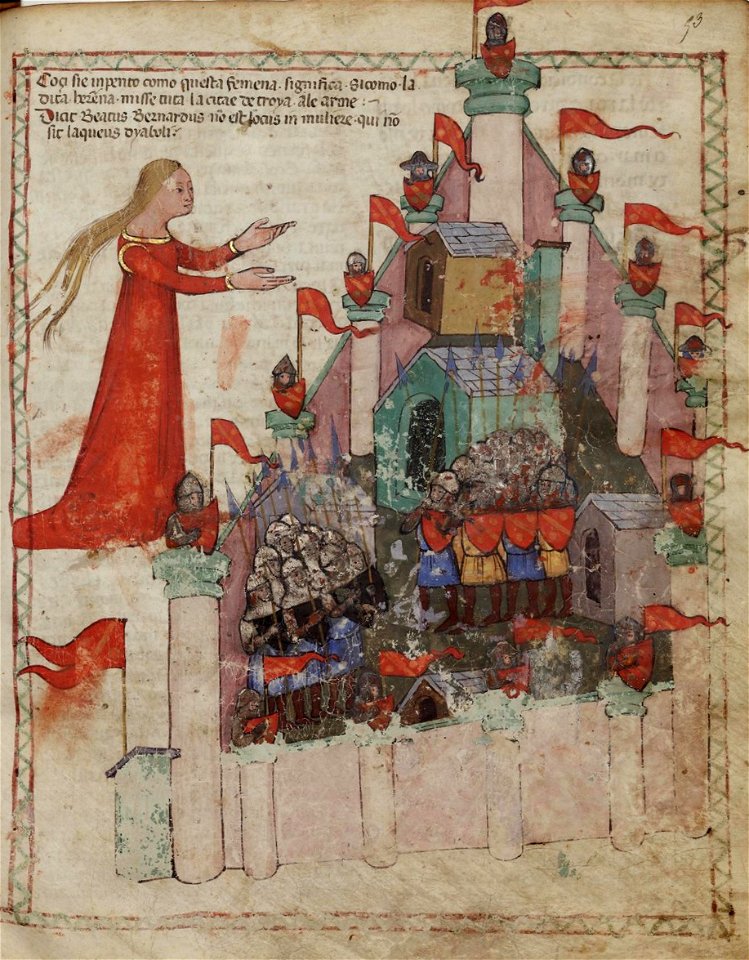 53
Coçi sie inpento como questa femena · significa · Sicomo · la
dita · beena · misse tuta · la citae de troya · ale arme :~
Dicit Beatus Bernardus nō est locus in muliere · qui nō
sit laqueus dyaboli ·